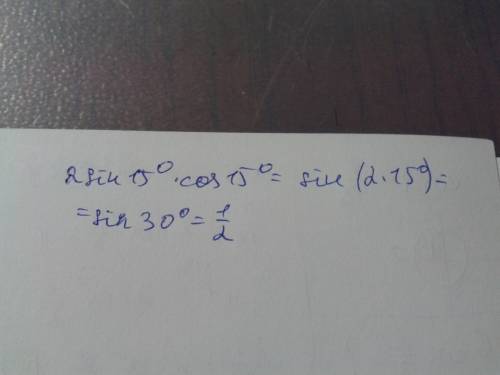 2sin15°·cos15°= sin(2·15°)=
=sin30°=1/2